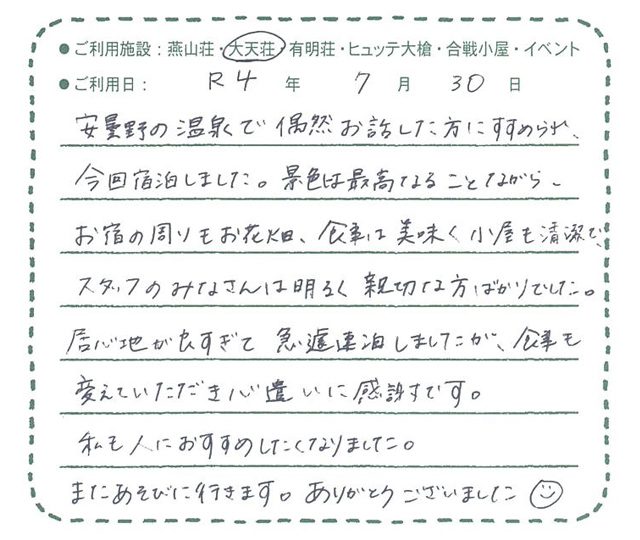 ●ご利用施設：燕山荘・大天荘・有明荘・ヒュッテ大槍・合戦小屋・イベント
●ご利用日： R4 年 7 月 30 日
安曇野の温泉で偶然お話した方にすすめられ、
今回宿泊しました。景色は最高なることながら、
お宿の周りもお花畑、食事は美味く小屋も清潔で、
スタッフのみなさんは明るく親切な方ばかりでした。
居心地が良すぎて急遽連泊しましたが、食事も
変えていただき心遣いに感謝です。
私も人におすすめしたくなりました。
またあそびに行きます。ありがとうございました